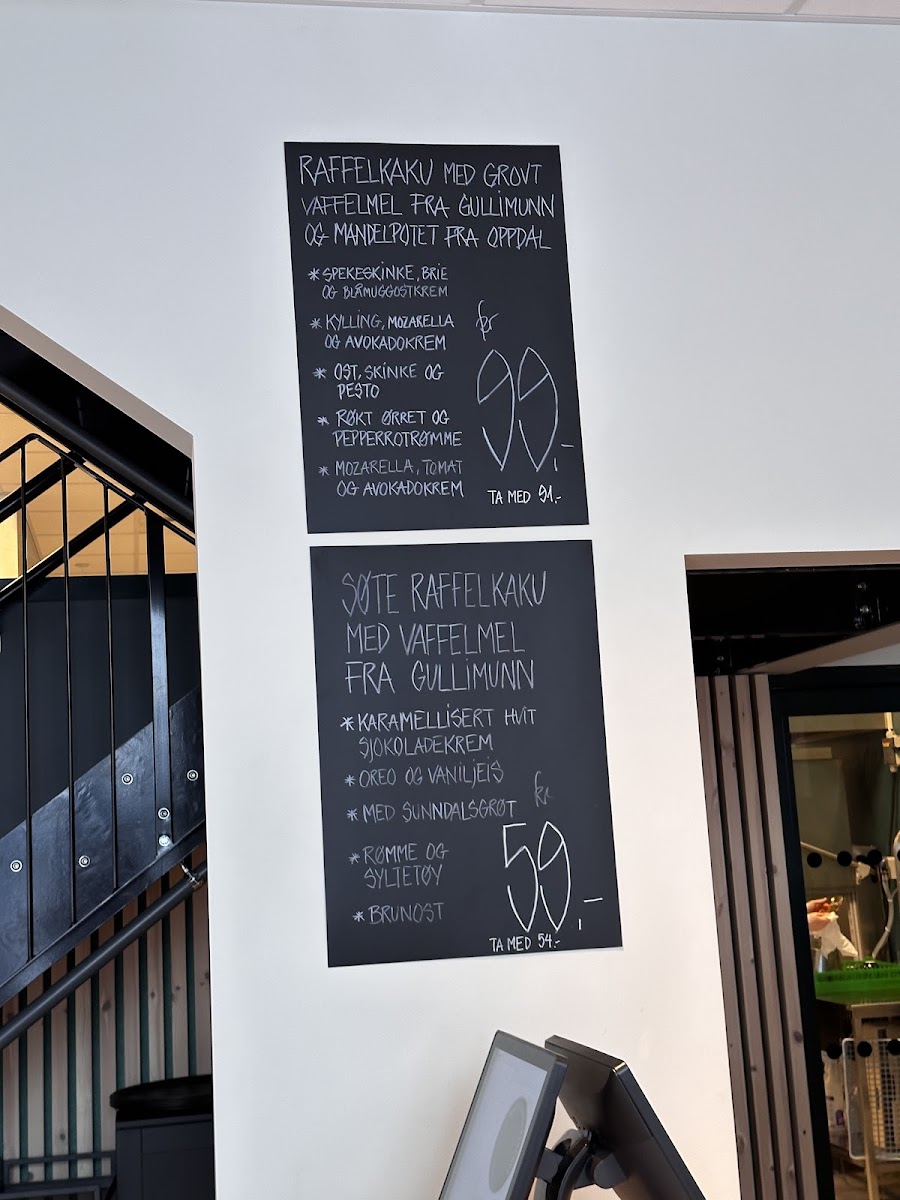 RAFFELKAKU MED GROVT
VAFFELMEL FRA GULLIMUNN
OG MANDELPOTET FRA OPPDAL
* SPEKESKINKE, BRIE
OG BLÅMUGGOSTKREM
* KYLLING, MOZARELLA
OG AVOKADOKREM
* OST, SKINKE OG
PESTO
* RØKT ØRRET OG
PEPPERROTRØMME
* MOZARELLA, TOMAT
OG AVOKADOKREM
kr
99,-
TA MED 91,-
SØTE RAFFELKAKU
MED VAFFELMEL
FRA GULLIMUNN
* KARAMELLISERT HVIT
SJOKOLADEKREM
* OREO OG VANILJEIS
* MED SUNNDALSGRØT
* RØMME OG
SYLTETØY
* BRUNOST
kr
59,-
TA MED 54,-